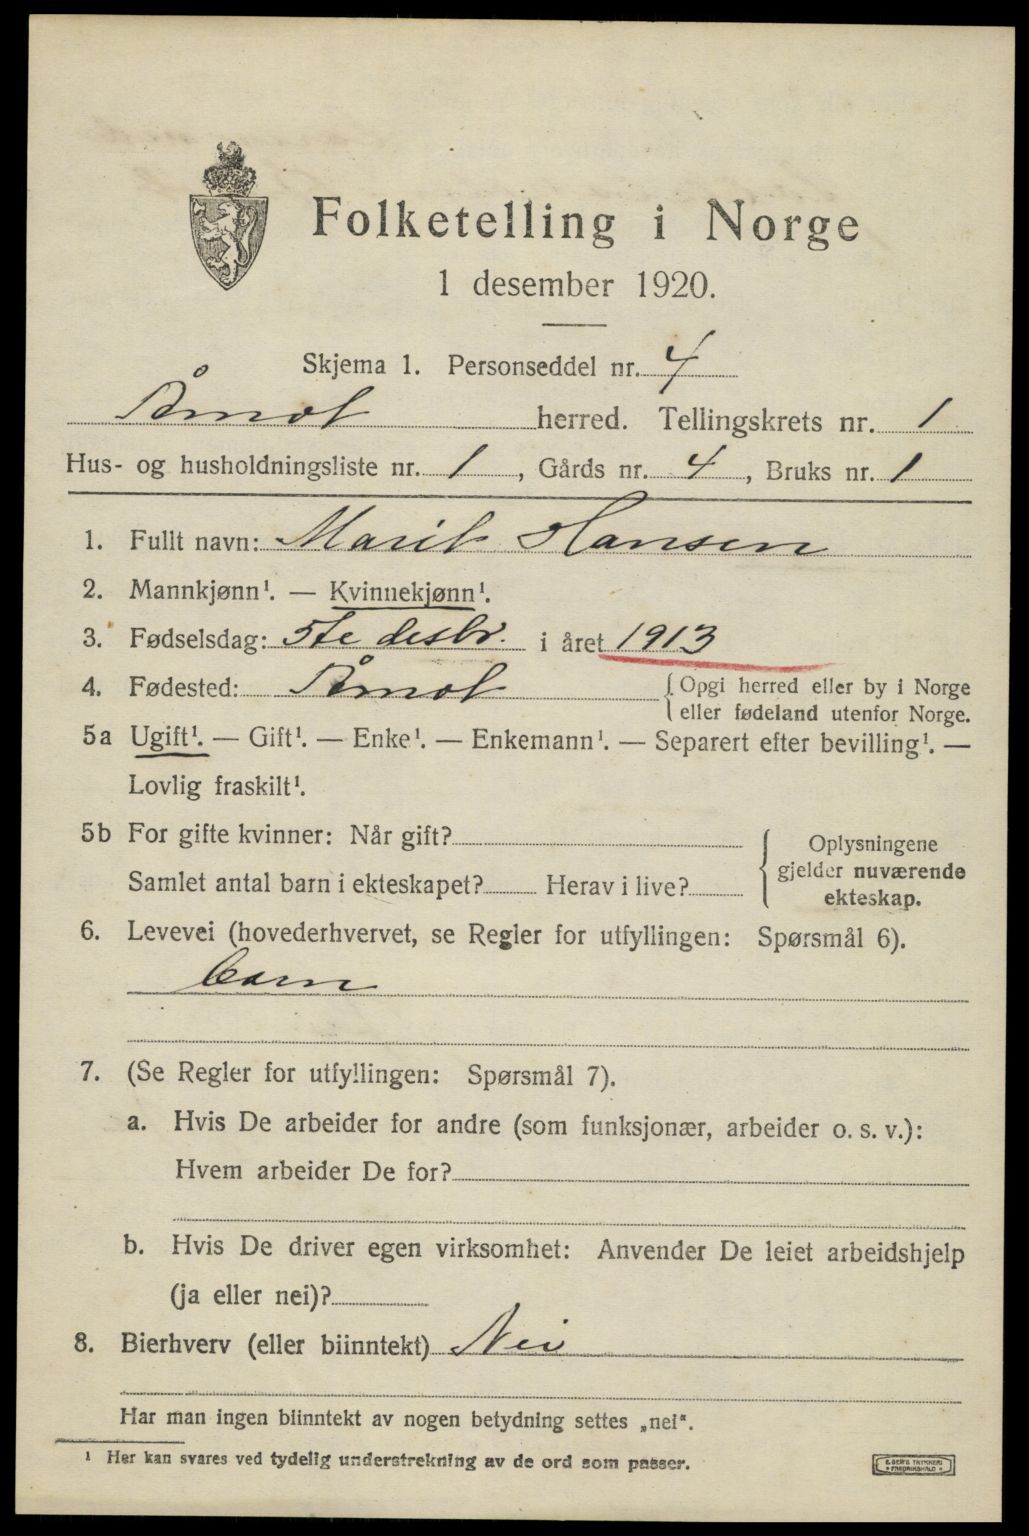 Folketelling i Norge
1 desember 1920.
Skjema 1. Personseddel nr. 4
Åmot herred. Tellingskrets nr. 1
Hus- og husholdningsliste nr. 1, Gårds nr. 4, Bruks nr. 1
1. Fullt navn: Marit Hansen
2. Mannkjønn¹. — Kvinnekjønn¹.
3. Fødselsdag: 5te desbr. i året 1913
4. Fødested: Åmot { Opgi herred eller by i Norge
eller fødeland utenfor Norge.
5a Ugift¹. — Gift¹. — Enke¹. — Enkemann¹. — Separert efter bevilling¹. —
Lovlig fraskilt¹.
5b For gifte kvinner: Når gift?
Samlet antal barn i ekteskapet? Herav i live?
{ Oplysningene
gjelder nuværende
ekteskap.
6. Levevei (hovederhvervet, se Regler for utfyllingen: Spørsmål 6).
barn
7. (Se Regler for utfyllingen: Spørsmål 7).
a. Hvis De arbeider for andre (som funksjonær, arbeider o. s. v.):
Hvem arbeider De for?
b. Hvis De driver egen virksomhet: Anvender De leiet arbeidshjelp
(ja eller nei)?
8. Bierhverv (eller biinntekt) Nei
Har man ingen biinntekt av nogen betydning settes „nei“.
¹ Her kan svares ved tydelig understrekning av de ord som passer.